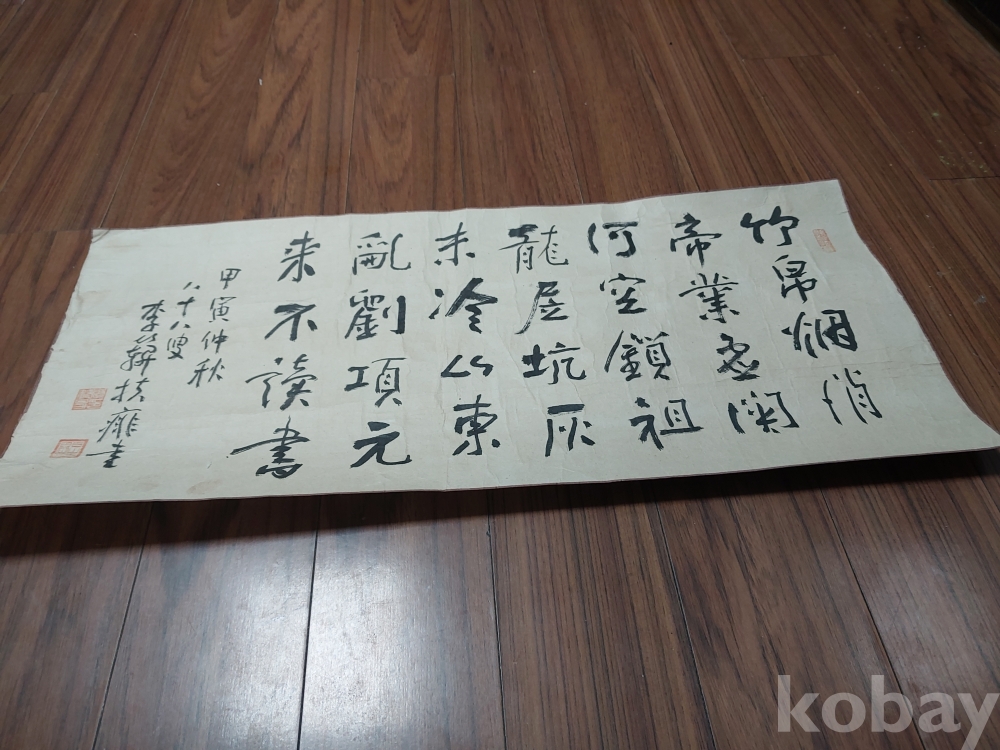 竹帛烟消
帝業虛關
河空鎖祖
龍居坑灰
未冷山東
亂劉項元
来不讀書
甲寅仲秋
八十八叟
李 扶 書
kobay